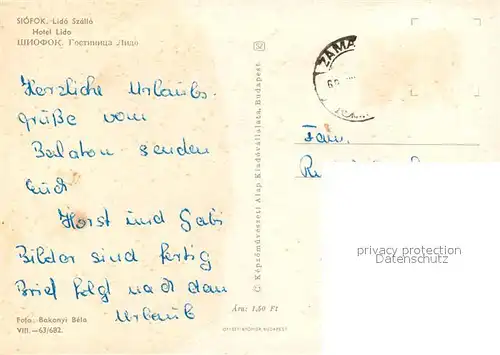 SIÓFOK. Lidó Szálló
Hotel Lido
ШИОФОК. Гостиница Лидо
Herzliche Urlaubs-
grüße vom
Balaton senden
Euch
Horst und Gabi
Bilder sind fertig
Brief folgt nach dem
Urlaub
Foto: Bakonyi Béla
VIII.—63/682.
C. Képzőművészeti Alap Kiadóvállalata, Budapest
Ára: 1,50 Ft
ZAMÁ
Fam.
privacy protection
Datenschutz